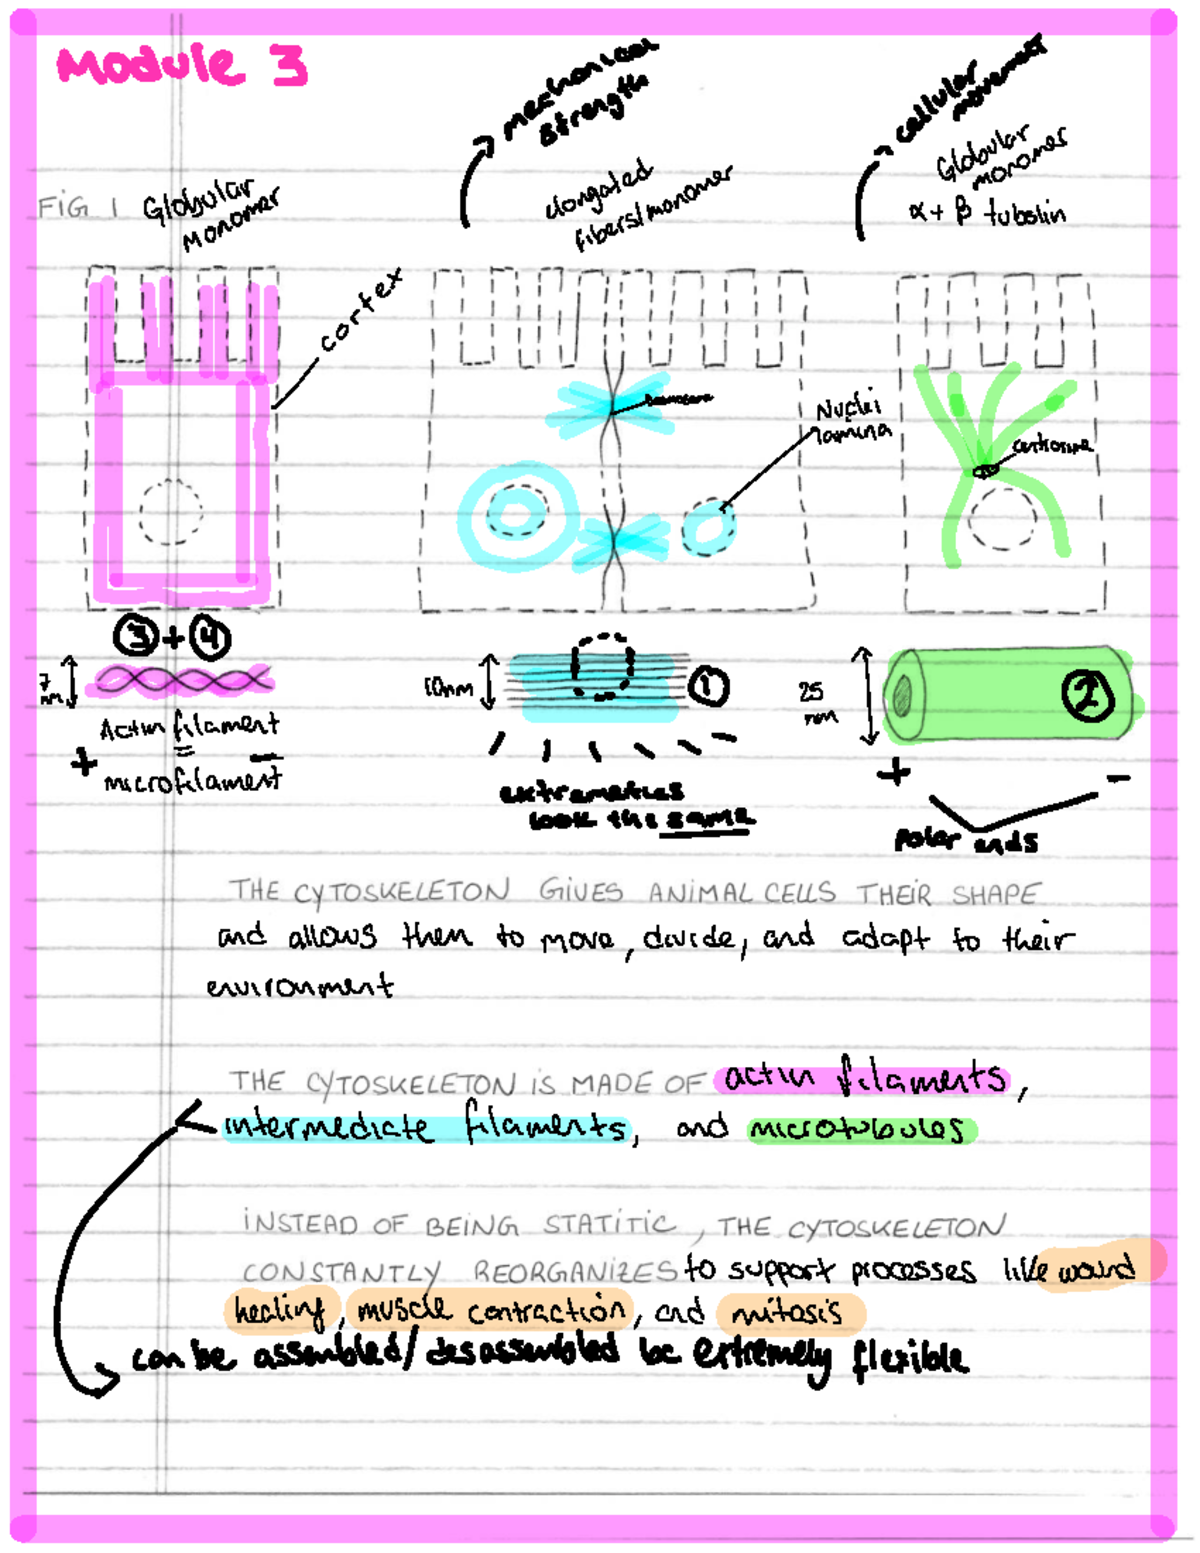 Module 3
mechanical
strength
cellular
movement
FIG 1
Globular
Monomer
elongated
fibers/monomer
Globular
monomers
α + β tubulin
cortex
Desmosome
Nuclei
lamina
centrosome
3 + 4
7
nm
Actin filament
=
+ microfilament −
10nm
1
extremeties
look the same
25
nm
2
+ −
polar ends
THE CYTOSKELETON GIVES ANIMAL CELLS THEIR SHAPE
and allows them to move, divide, and adapt to their
environment
THE CYTOSKELETON IS MADE OF actin filaments,
intermediate filaments, and microtubules
INSTEAD OF BEING STATITIC, THE CYTOSKELETON
CONSTANTLY REORGANIZES to support processes like wound
healing, muscle contraction, and mitosis
can be assembled/desassembled bc extremely flexible